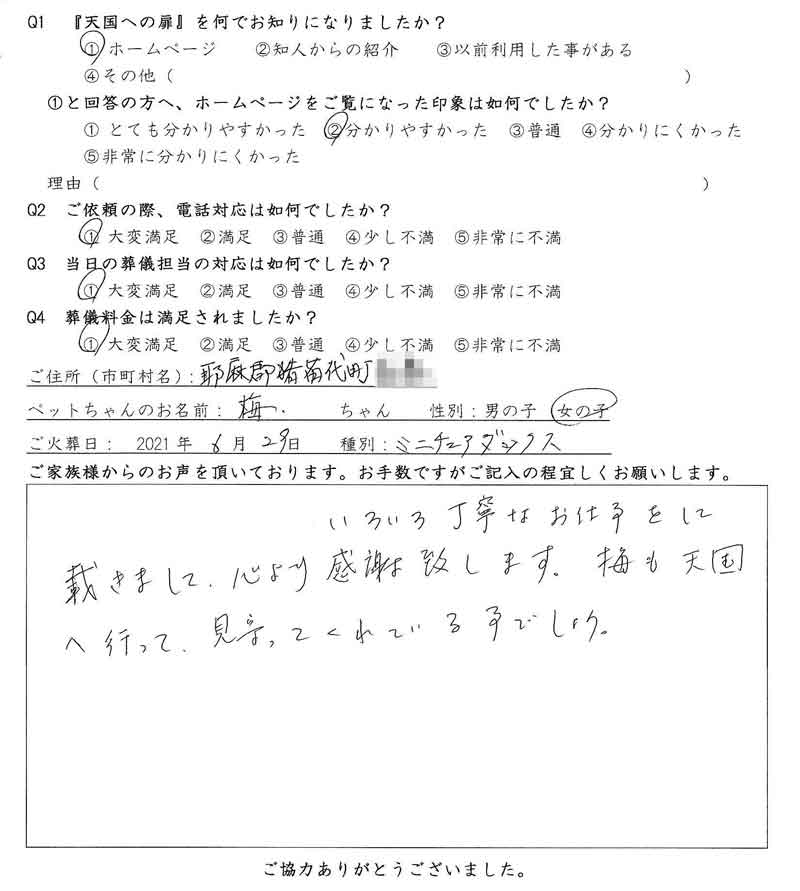 Q1 『天国への扉』を何でお知りになりましたか？
①ホームページ ②知人からの紹介 ③以前利用した事がある
④その他（ ）
①と回答の方へ、ホームページをご覧になった印象は如何でしたか？
① とても分かりやすかった ②分かりやすかった ③普通 ④分かりにくかった
⑤非常に分かりにくかった
理由（ ）
Q2 ご依頼の際、電話対応は如何でしたか？
① 大変満足 ②満足 ③普通 ④少し不満 ⑤非常に不満
Q3 当日の葬儀担当の対応は如何でしたか？
① 大変満足 ②満足 ③普通 ④少し不満 ⑤非常に不満
Q4 葬儀料金は満足されましたか？
① 大変満足 ②満足 ③普通 ④少し不満 ⑤非常に不満
ご住所（市町村名）：耶麻郡猪苗代町
ペットちゃんのお名前： 梅 ちゃん 性別：男の子 女の子
ご火葬日： 2021年 6月 29日 種別：ミニチュアダックス
ご家族様からのお声を頂いております。お手数ですがご記入の程宜しくお願いします。
いろいろ丁寧なお仕事をして
載きまして、心より感謝致します。梅も天国
へ行って、見守ってくれている事でしょう。
ご協力ありがとうございました。